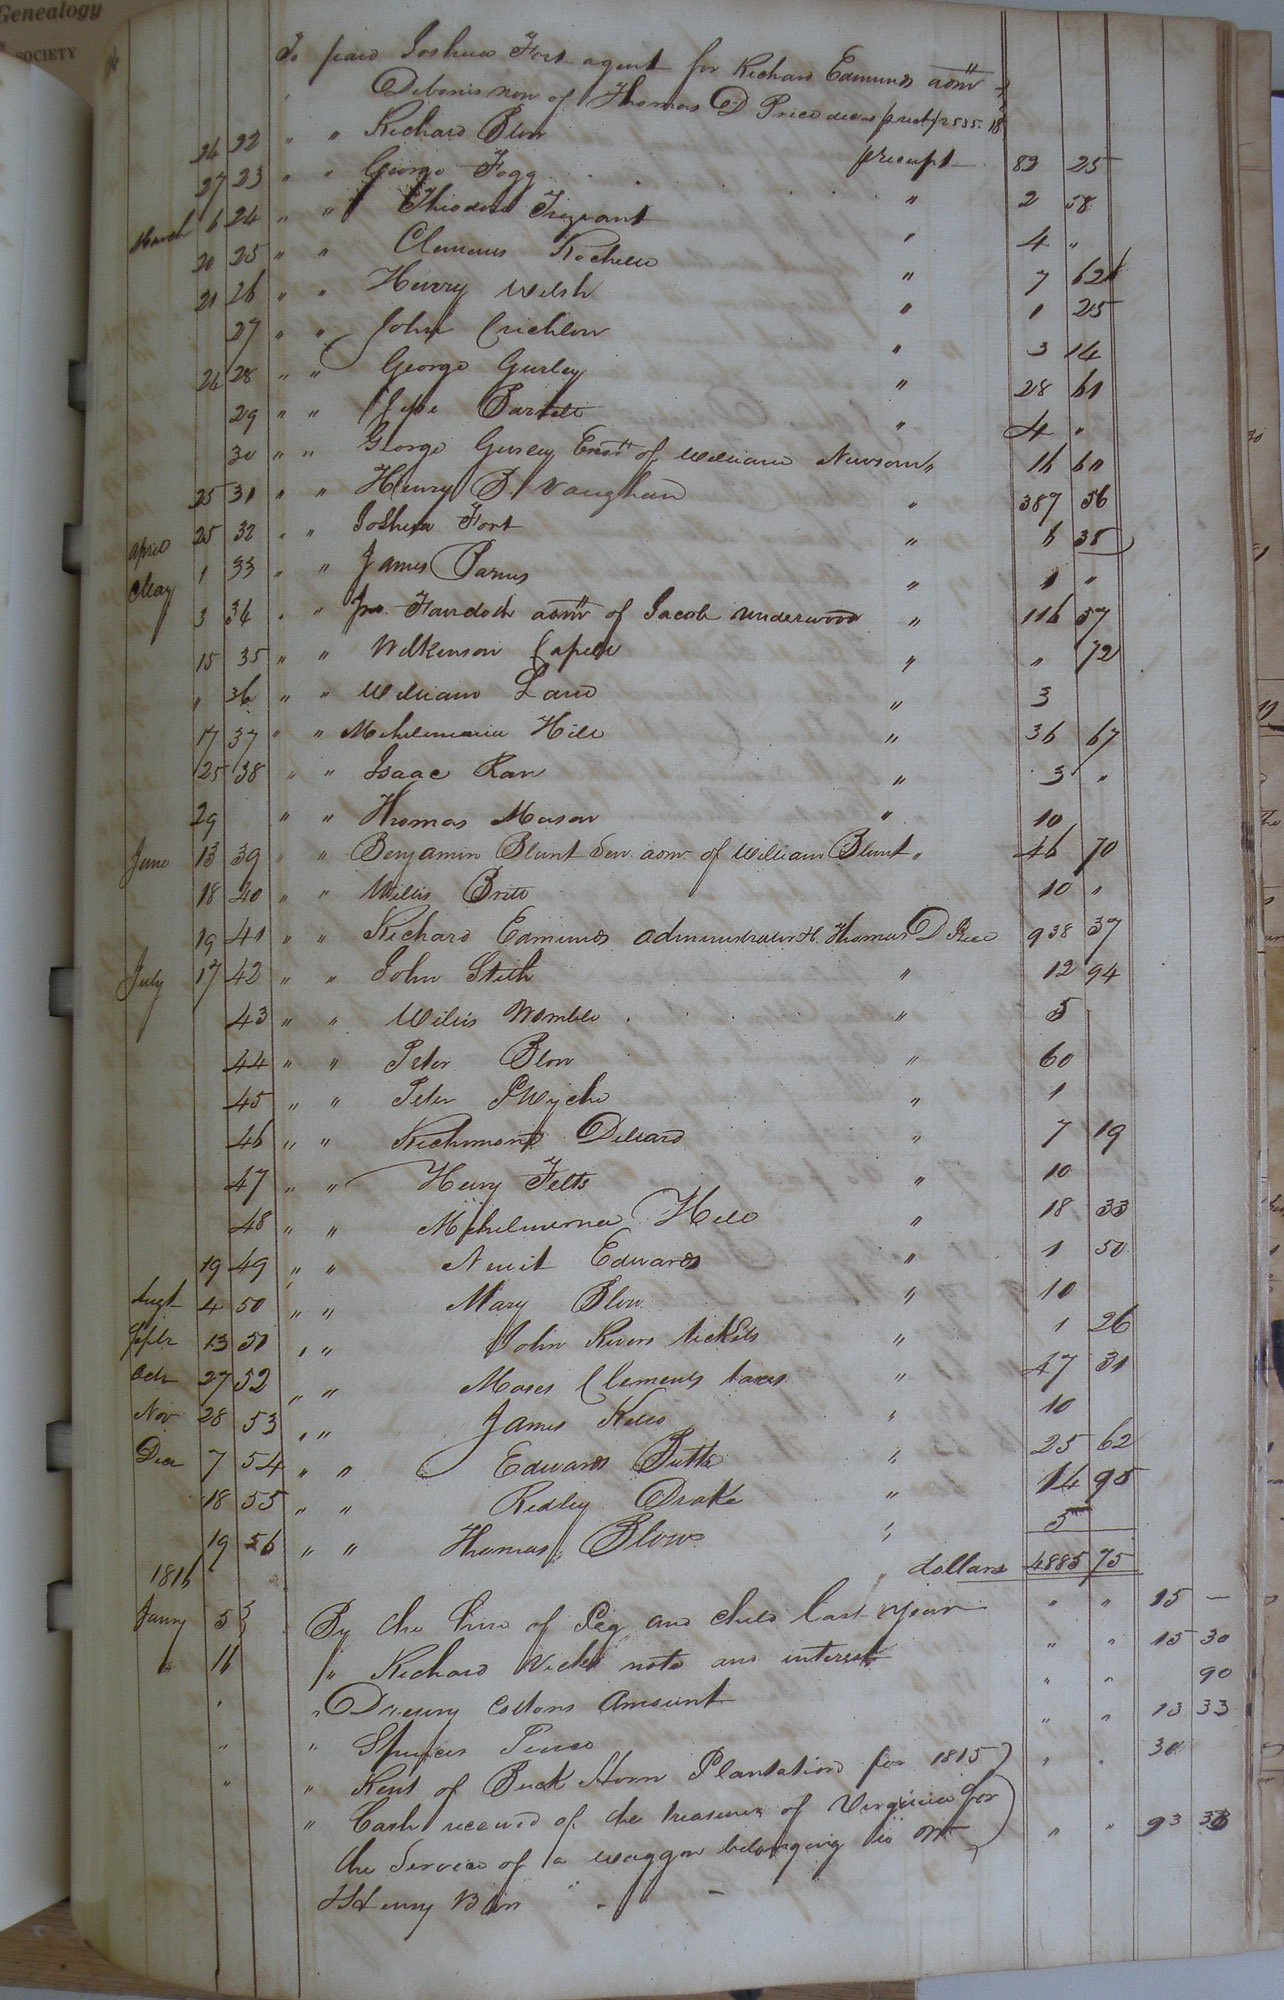 Genealogy
SOCIETY
To paid Joshua Fort agent for Richard Edmunds admr
Debonis non of Thomas D Price decd
24 22 " " Richard Blow precept 83 25
27 23 " " George Fogg " 2 58
March 6 24 " " Theodore Trezvant " 4 "
20 25 " " Clements Rochelle " 7 62
21 26 " " Henry Welsh " 1 25
27 " " John Crichlow " 3 14
24 28 " " George Gurley " 28 61
29 " " Jesse Barrett " 4 "
30 " " George Gurley Exor of William Newsom " 16 60
25 31 " " Henry B. Vaughan " 387 56
April 25 32 " " Joshua Fort " 6 38
May 1 33 " " James Barnes " 1 "
3 34 " " Jno admr of Jacob Underwood " 116 57
15 35 " " Wilkinson Capell " " 72
" 36 " " William Land " 3
17 37 " " Mehelmaria Hill " 36 67
25 38 " " Isaac Raw " 3 "
29 " " Thomas Mason " 10
June 13 39 " " Benjamin Blunt Sen admr of William Blunt " 46 70
18 40 " " Willis Britt 10 "
19 41 " " Richard Edmunds administrator Thomas D Price 938 37
July 17 42 " " John Stith " 12 94
43 " " Willis Womble " 5
44 " " Peter Blow " 60
45 " " Peter P Wyche " 1
46 " " Richmond Dillard " 7 19
47 " " Henry Felts " 10
48 " " Mehelmerna Hill " 18 33
19 49 " " Newit Edwards " 1 50
Augt 4 50 " " Mary Blow " 10
Septr 13 51 " " John Rivers tickets " 1 26
Octr 27 52 " " Moses Clements taxes " 47 31
Nov 28 53 " " James Kello " 10
Decr 7 54 " " Edwards Butts " 25 62
18 55 " " Ridley Drake " 14 95
19 56 " " Thomas Blow " 5
dollars 4885 75
1816
Janry 5 By the hire of Peg and child last year " " 15 —
16 " Richard Vicks note and interest " " 15 30
" Drewry Cottons Amount " " 90
" " Spencer " " 13 33
" " Rent of Buck Horn Plantation for 1815 " " 30
" Cash received of the treasurer of Virginia for
the Service of a waggon belonging to " " 93 33
Henry Blow